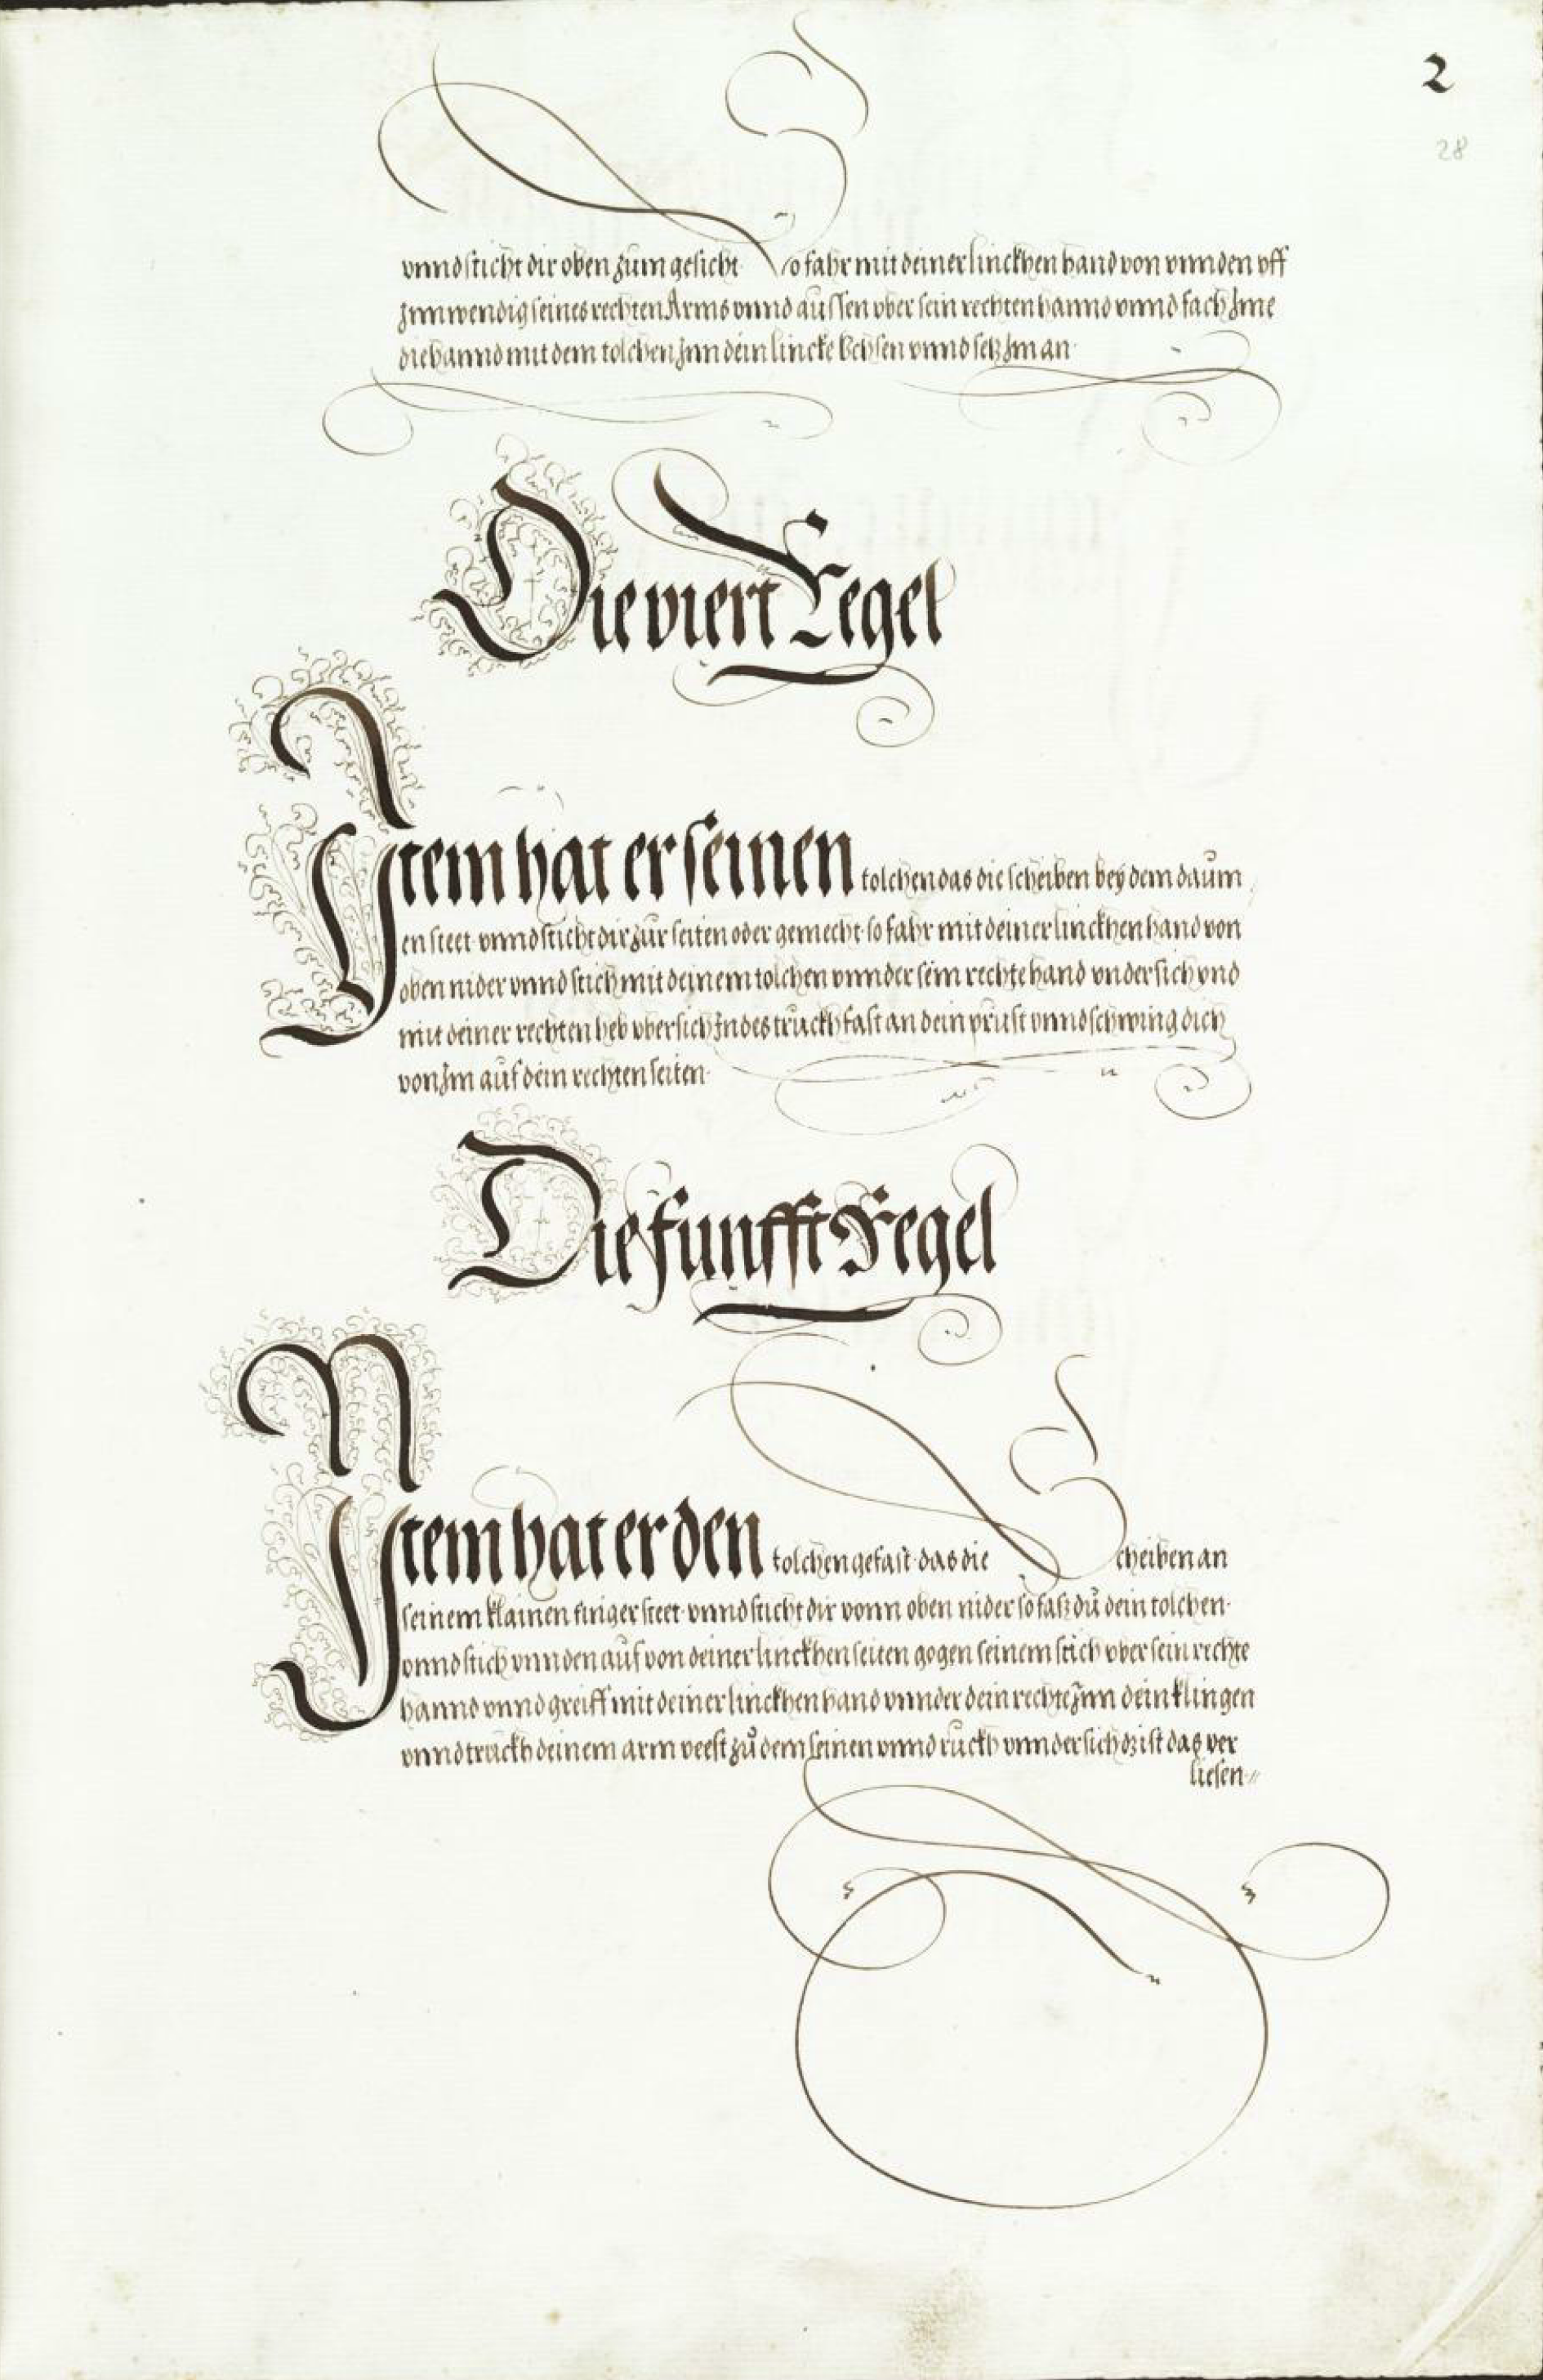 2
28
vnnd sticht dir oben zum gesicht So fahr mit deiner linckhen hand von vnnden vff
Jnnwendig seines rechten Arms vnnd aussen vber sein rechten hannd vnnd fach Jme
die hannd mit dem tolchen Jnn dein lincke Vchsen vnnd setz Jm an
Die viert Regel
Item hat er seinen tolchen das die scheiben bey dem daum
en steet vnnd sticht dir zur seiten oder gemecht so fahr mit deiner linckhen hand von
oben nider vnnd stich mit deinem tolchen vnnder sein rechte hand vndersich vnd
mit deiner rechten heb vbersich Jndes truckh fast an dein prust vnnd schwing dich
von Jm auf dein rechten seiten
Die funfft Regel
Item hat er den tolchen gefast das die Scheiben an
seinem klainen finger steet vnnd sticht dir vonn oben nider so fasz dů dein tolchen
vnnd stich vnnden auf von deiner linckhen seiten gogen seinem stich vber sein rechte
hannd vnnd greiff mit deiner linckhen hand vnnder dein rechte Jnn dein klingen
vnnd truckh deinem arm veest zů dem seinen vnnd ruckh vnndersich dz ist das ver
liesen